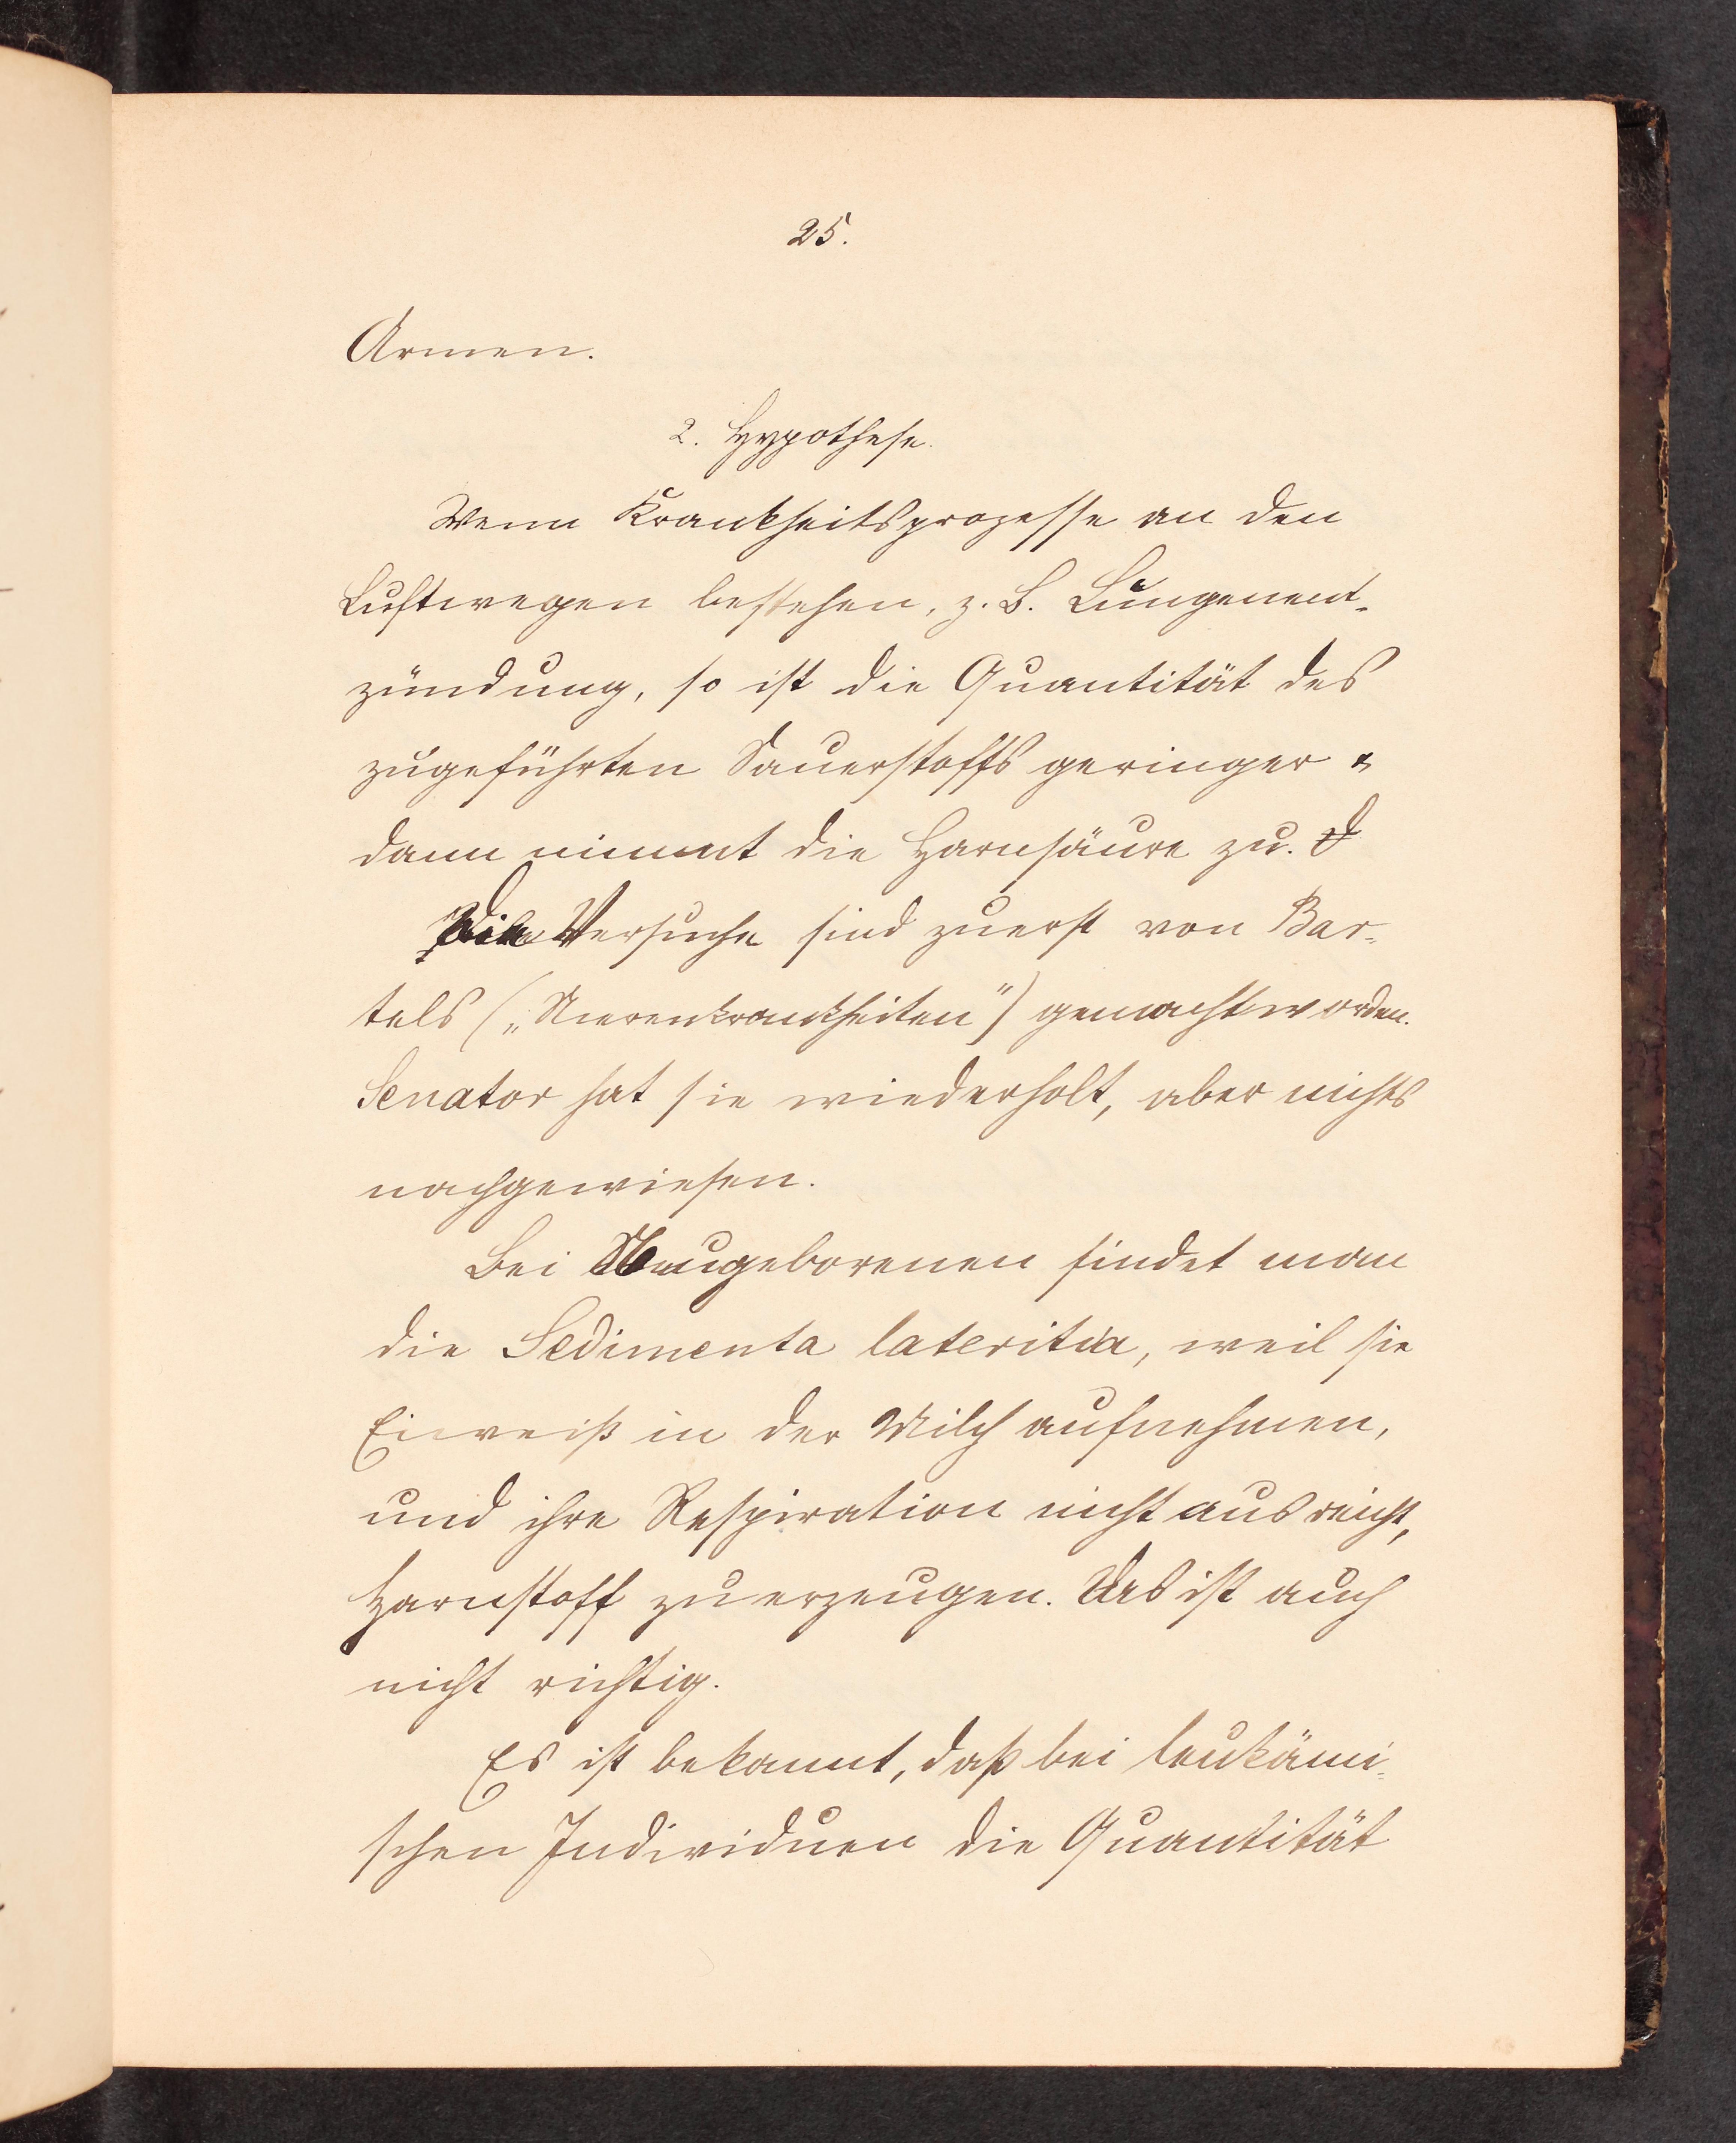 25.
Armen.
2. Hypothese.
Wenn Krankheitsprozesse an den
Luftwegen bestehen, z. B. Lungenent-
zündung, so ist die Quantität des
zugeführten Sauerstoffs geringer &
dann nimmt die Harnsäure zu.
Die Versuche sind zuerst von Bar-
tels („Nierenkrankheiten") gemacht worden.
Senator hat sie wiederholt, aber nichts
nachgewiesen.
Bei Neugeborenen findet man
die Sedimenta lateritia, weil sie
Eiweiß in der Milch aufnehmen,
und ihre Respiration nicht ausreicht,
Harnstoff zu erzeugen. Das ist auch
nicht richtig.
Es ist bekannt, daß bei leukämi-
schen Individuen die Quantität